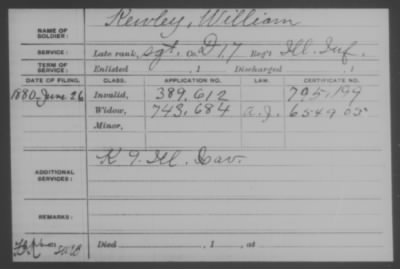 Kewley, William
NAME OF
SOLDIER:
SERVICE: Late rank, Sgt. Co. D 17 Reg't Ill. Inf.
TERM OF
SERVICE: Enlisted , 1 Discharged , 1
DATE OF FILING. CLASS. APPLICATION NO. LAW. CERTIFICATE NO.
1880-June 26 Invalid, 389,612 795,199
Widow, 743,684 a.j. 654905
Minor,
ADDITIONAL
SERVICES: K 9 Ill. Cav.
REMARKS:
Died , 1 , at